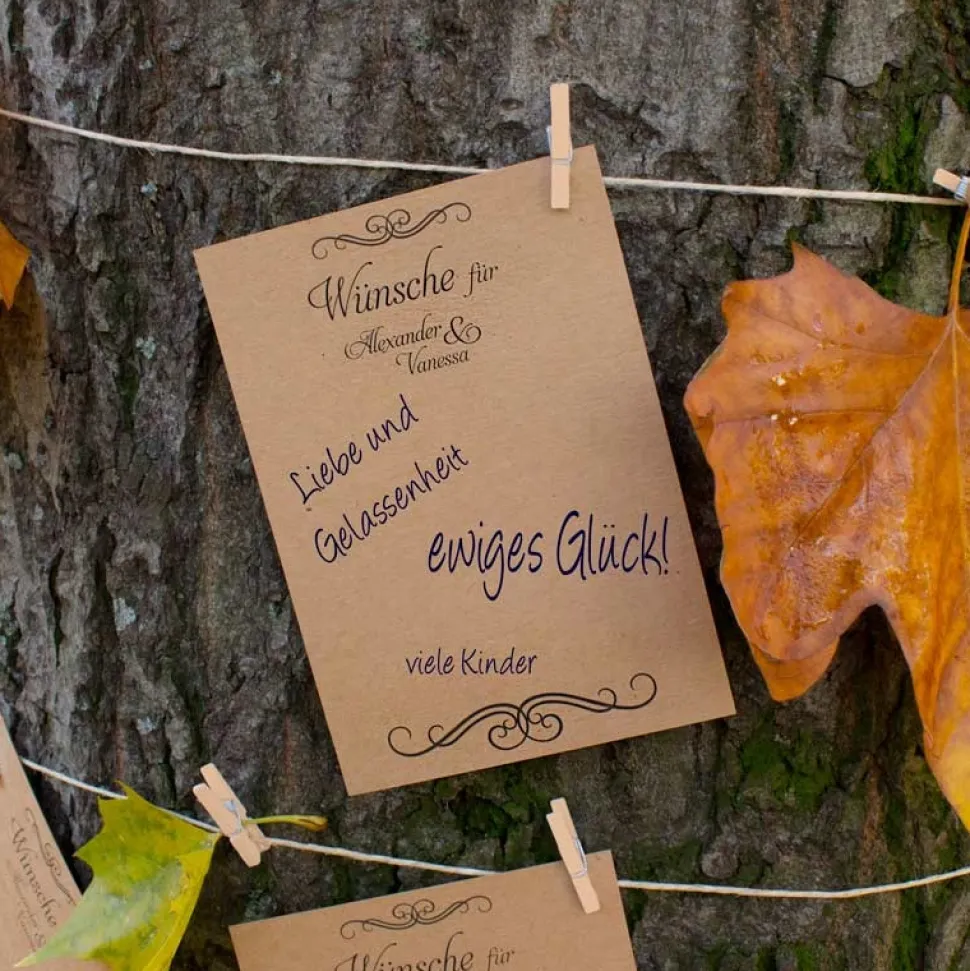 Wünsche für
Alexander &
Vanessa
Liebe und
Gelassenheit
ewiges Glück!
viele Kinder
Wünsche
Wünsche für